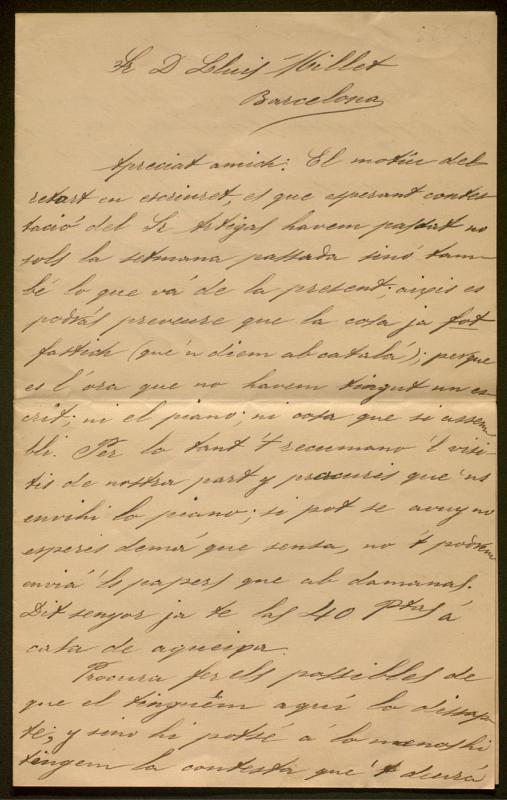 Sr D Lluis Millet
Barcelona
Apreciat amich: El motiu del
retart en escriuret, es que esperant contes
tació del Sr Artigas havem passat no
sols la setmana passada sinó tam
bé lo que vá de la present; aixis es
podrás preveure que la cosa ja fot
fastich (que 'n diem ab catalá); perque
es l'ora que no havem tingut un es
crit; ni el piano; ni cosa que si assem
bli. Per lo tant 't recumano 'l visi
tis de nostra part y procuris que 'ns
envihi lo piano; si pot se avuy no
esperis demá que sensa, no 't podrem
enviá 'ls papers que ab damanas.
Dit senyor ja te las 40 Ptas á
casa de
Procura fer els possibles de
que el tinguèm aquí lo dissap
te; y sino hi potsé á lo menos hi
tingèm la contesta que 't dará